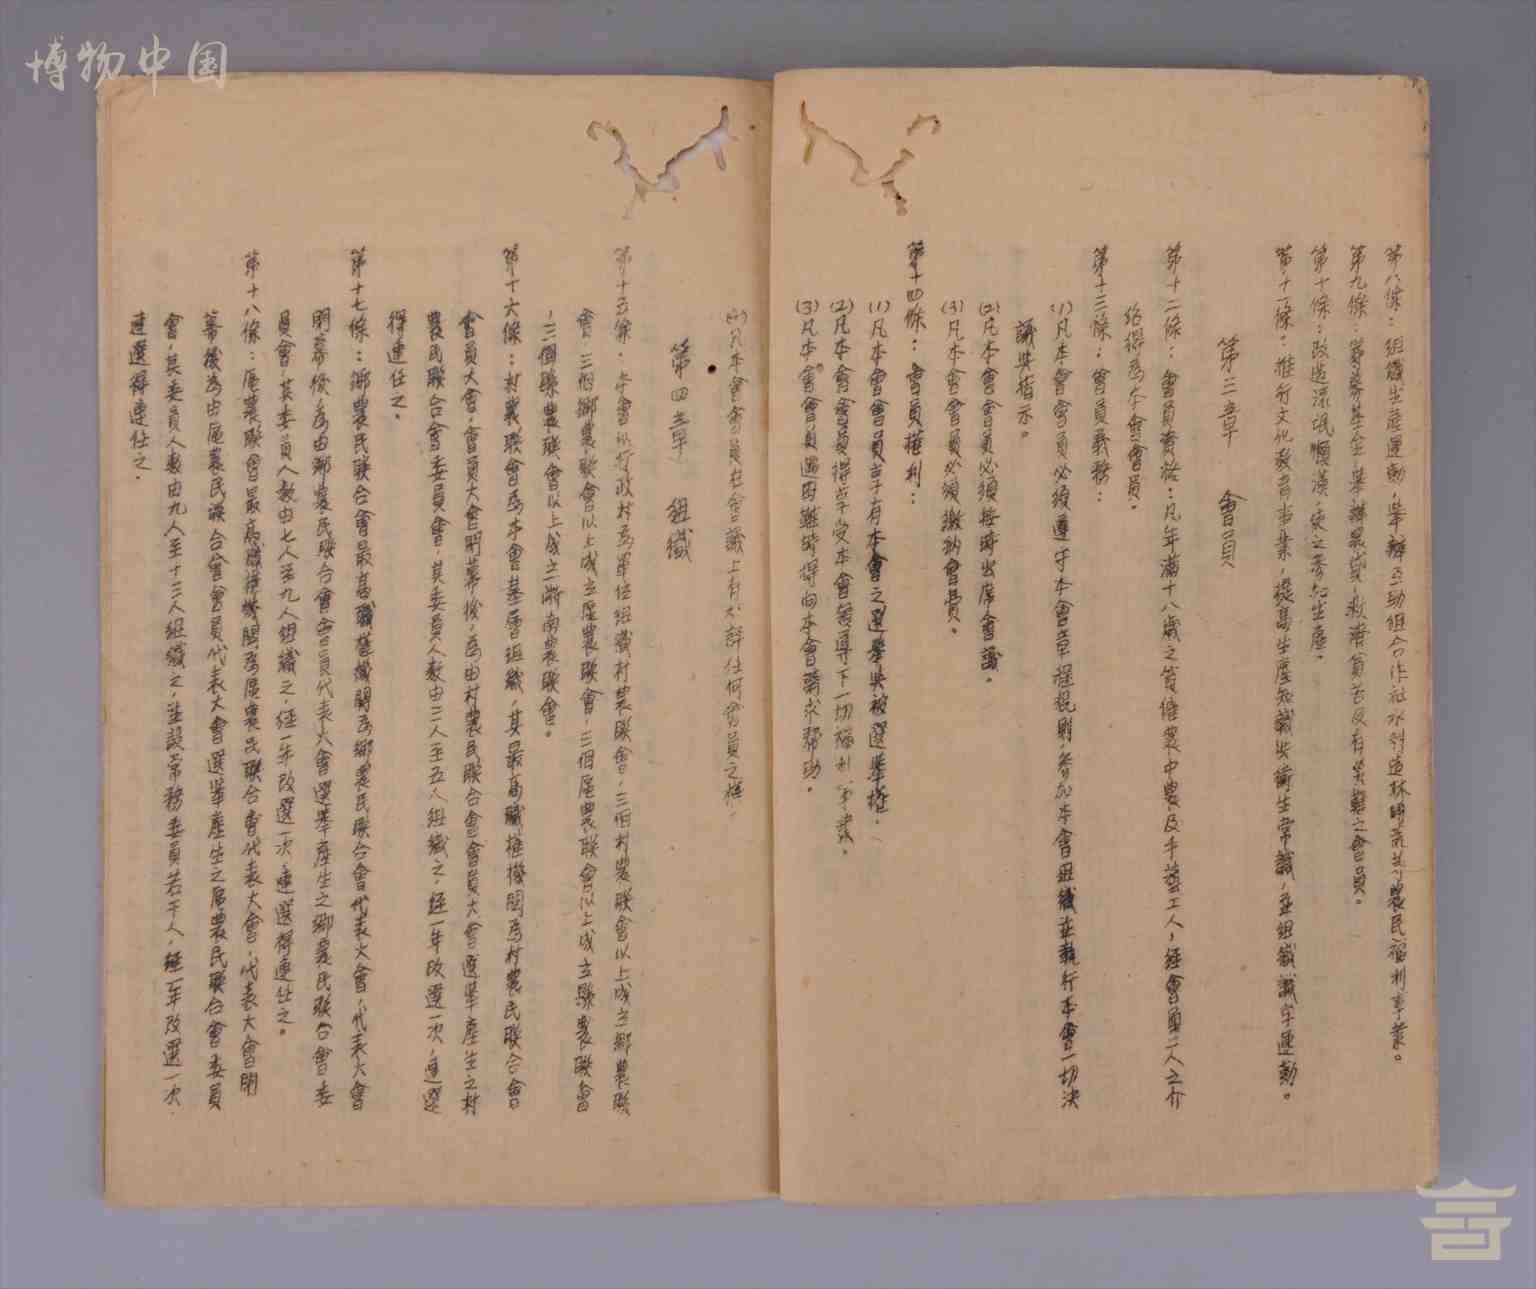 博物中国
第八條：組織生產運動，舉辦互助組合作社水利造林墾荒等農民福利事業。
第九條：籌募基金，舉辦衆貸，救濟貧苦及有災難之會員。
第十條：改造流氓懶漢，使之參加生產。
第十一條：推行文化教育事業，提高生產知識與衛生常識，並組織識字運動。
第三章 會員
第十二條：會員資格：凡年滿十八歲之貧僱農中農及手藝工人，經會員二人之介
紹得爲本會會員。
第十三條：會員義務：
(1)凡本會會員必須遵守本會章程規則，參加本會組織並執行本會一切決
議與指示。
(2)凡本會會員必須按時出席會議。
(3)凡本會會員必須繳納會費。
第十四條：會員權利：
(1)凡本會會員享有本會之選舉與被選舉權。
(2)凡本會會員得享受本會領導下一切福利事業。
(3)凡本會會員遇困難時得向本會請求幫助。
(4)凡本會會員在會議上有批評任何會員之權。
第四章 組織
第十五條：本會以行政村爲單位組織村農聯會，三個村農聯會以上成立鄉農聯
會，三個鄉農聯會以上成立區農聯會，三個區農聯會以上成立縣農聯會
，三個縣農聯會以上成立浙南農聯會。
第十六條：村農聯會爲本會基層組織，其最高職權機關爲村農民聯合會
會員大會，會員大會閉幕後，爲由村農民聯合會會員大會選舉產生之村
農民聯合會委員會，其委員人數由三人至五人組織之，經一年改選一次，連選
得連任之。
第十七條：鄉農民聯合會最高職權機關爲鄉農民聯合會代表大會，代表大會
閉幕後，爲由鄉農民聯合會會員代表大會選舉產生之鄉農民聯合會委
員會，其委員人數由七人至九人組織之，經一年改選一次，連選得連任之。
第十八條：區農聯會最高職權機關爲區農民聯合會代表大會，代表大會閉
幕後爲由區農民聯合會會員代表大會選舉產生之區農民聯合會委員
會，其委員人數由九人至十三人組織之，並設常務委員若干人，經一年改選一次，
連選得連任之。